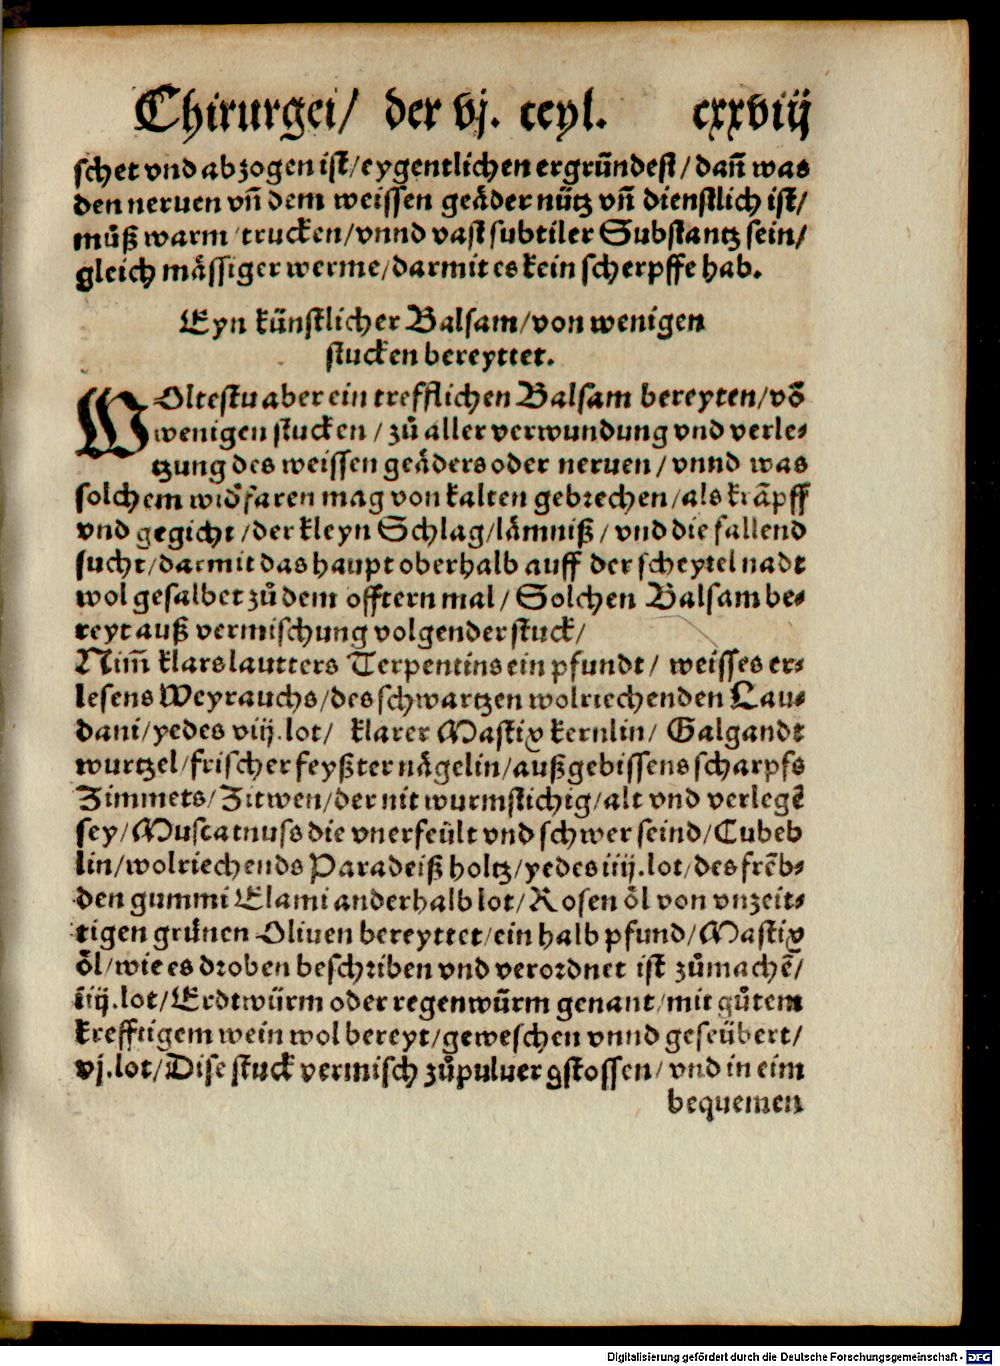 Chirurgei/ der vj. teyl. cxxviij
schet vnd abzogen ist/eygentlichen ergründest/dañ was
den neruen vñ dem weissen geäder nütz vñ dienstlich ist/
můß warm trucken/vnnd vast subtiler Substantz sein/
gleich mässiger werme/darmit es kein scherpffe hab.
Eyn künstlicher Balsam/von wenigen
stucken bereyttet.
WOltestu aber ein trefflichen Balsam bereyten/võ
wenigen stucken/zů aller verwundung vnd verle⸗
tzung des weissen geäders oder neruen/vnnd was
solchem widẽfaren mag von kalten gebrechen/als krãpff
vnd gegicht/der kleyn Schlag/lämniß/vnd die fallend
sucht/darmit das haupt oberhalb auff der scheytel nadt
wol gesalbet zů dem offtern mal/Solchen Balsam be⸗
reyt auß vermischung volgender stuck/
Nim̃ klars lautters Terpentins ein pfundt/ weisses er⸗
lesens Weyrauchs/des schwartzen wolriechenden Lau⸗
dani/yedes viij.lot/ klarer Mastix kernlin/ Galgandt
wurtzel/frischer feyßter nägelin/außgebissens scharpfs
Zimmets/Zitwen/der nit wurmstichig/alt vnd verlegẽ
sey/Muscatnuss die vnerfeült vnd schwer seind/Cubeb
lin/wolriechends Paradeiß holtz/yedes iiij.lot/des frẽb⸗
den gummi Elami anderhalb lot/Rosen öl von vnzeit⸗
tigen grünen Oliuen bereyttet/ein halb pfund/Mastix
öl/wie es droben beschriben vnd verordnet ist zůmachẽ/
iiij.lot/Erdtwürm oder regenwürm genant/mit gůtem
krefftigem wein wol bereyt/geweschen vnnd geseübert/
vj.lot/Dise stuck vermisch zůpuluer gstossen/vnd in eim
bequemen
Digitalisierung gefördert durch die Deutsche Forschungsgemeinschaft - DFG